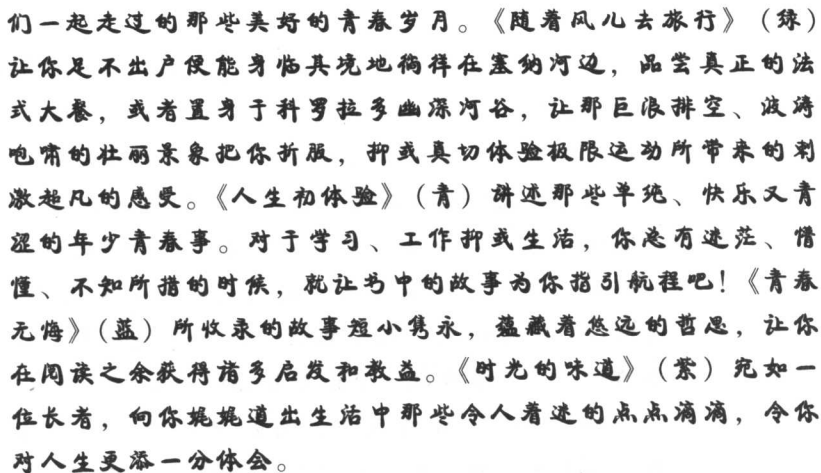 们一起走过的那些美好的青春岁月。《随着风儿去旅行》（绿）
让你足不出户便能身临其境地徜徉在塞纳河边，品尝真正的法
式大餐，或者置身于科罗拉多幽深河谷，让那巨浪排空、波涛
咆啸的壮丽景象把你折服，抑或真切体验极限运动所带来的刺
激超凡的感受。《人生初体验》（青）讲述那些单纯、快乐又青
涩的年少青春事。对于学习、工作抑或生活，你总有迷茫、懵
懂、不知所措的时候，就让书中的故事为你指引航程吧！《青春
无悔》（蓝）所收录的故事短小隽永，蕴藏着悠远的哲思，让你
在阅读之余获得诸多启发和教益。《时光的味道》（紫）宛如一
位长者，向你娓娓道出生活中那些令人着迷的点点滴滴，令你
对人生更添一分体会。